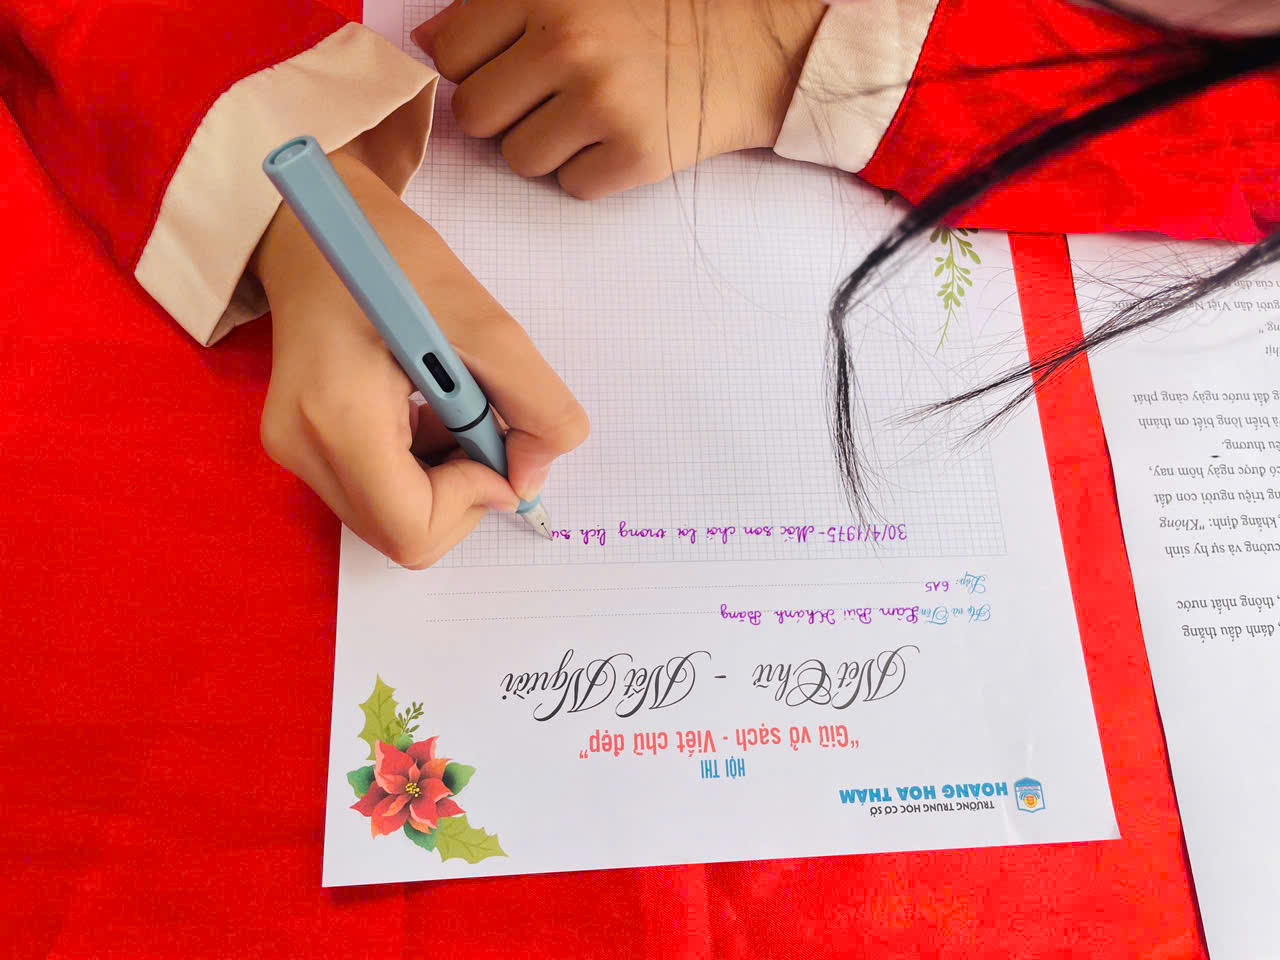 TRƯỜNG TRUNG HỌC CƠ SỞ
HOÀNG HOA THÁM
HỘI THI
“Giữ vở sạch - Viết chữ đẹp”
Nét Chữ - Nết Người
Họ và Tên: Lâm Bùi Khánh Băng
Lớp: 6A5
30/4/1975 - Mốc son chói lọi trong lịch sử
, đánh dấu thắng
, thống nhất nước
cường và sự hy sinh
khẳng định: "Không
triệu người con đất
có được ngày hôm nay,
yêu thương.
và biển lòng biết ơn thành
đất nước ngày càng phát
người dân Việt
của dân